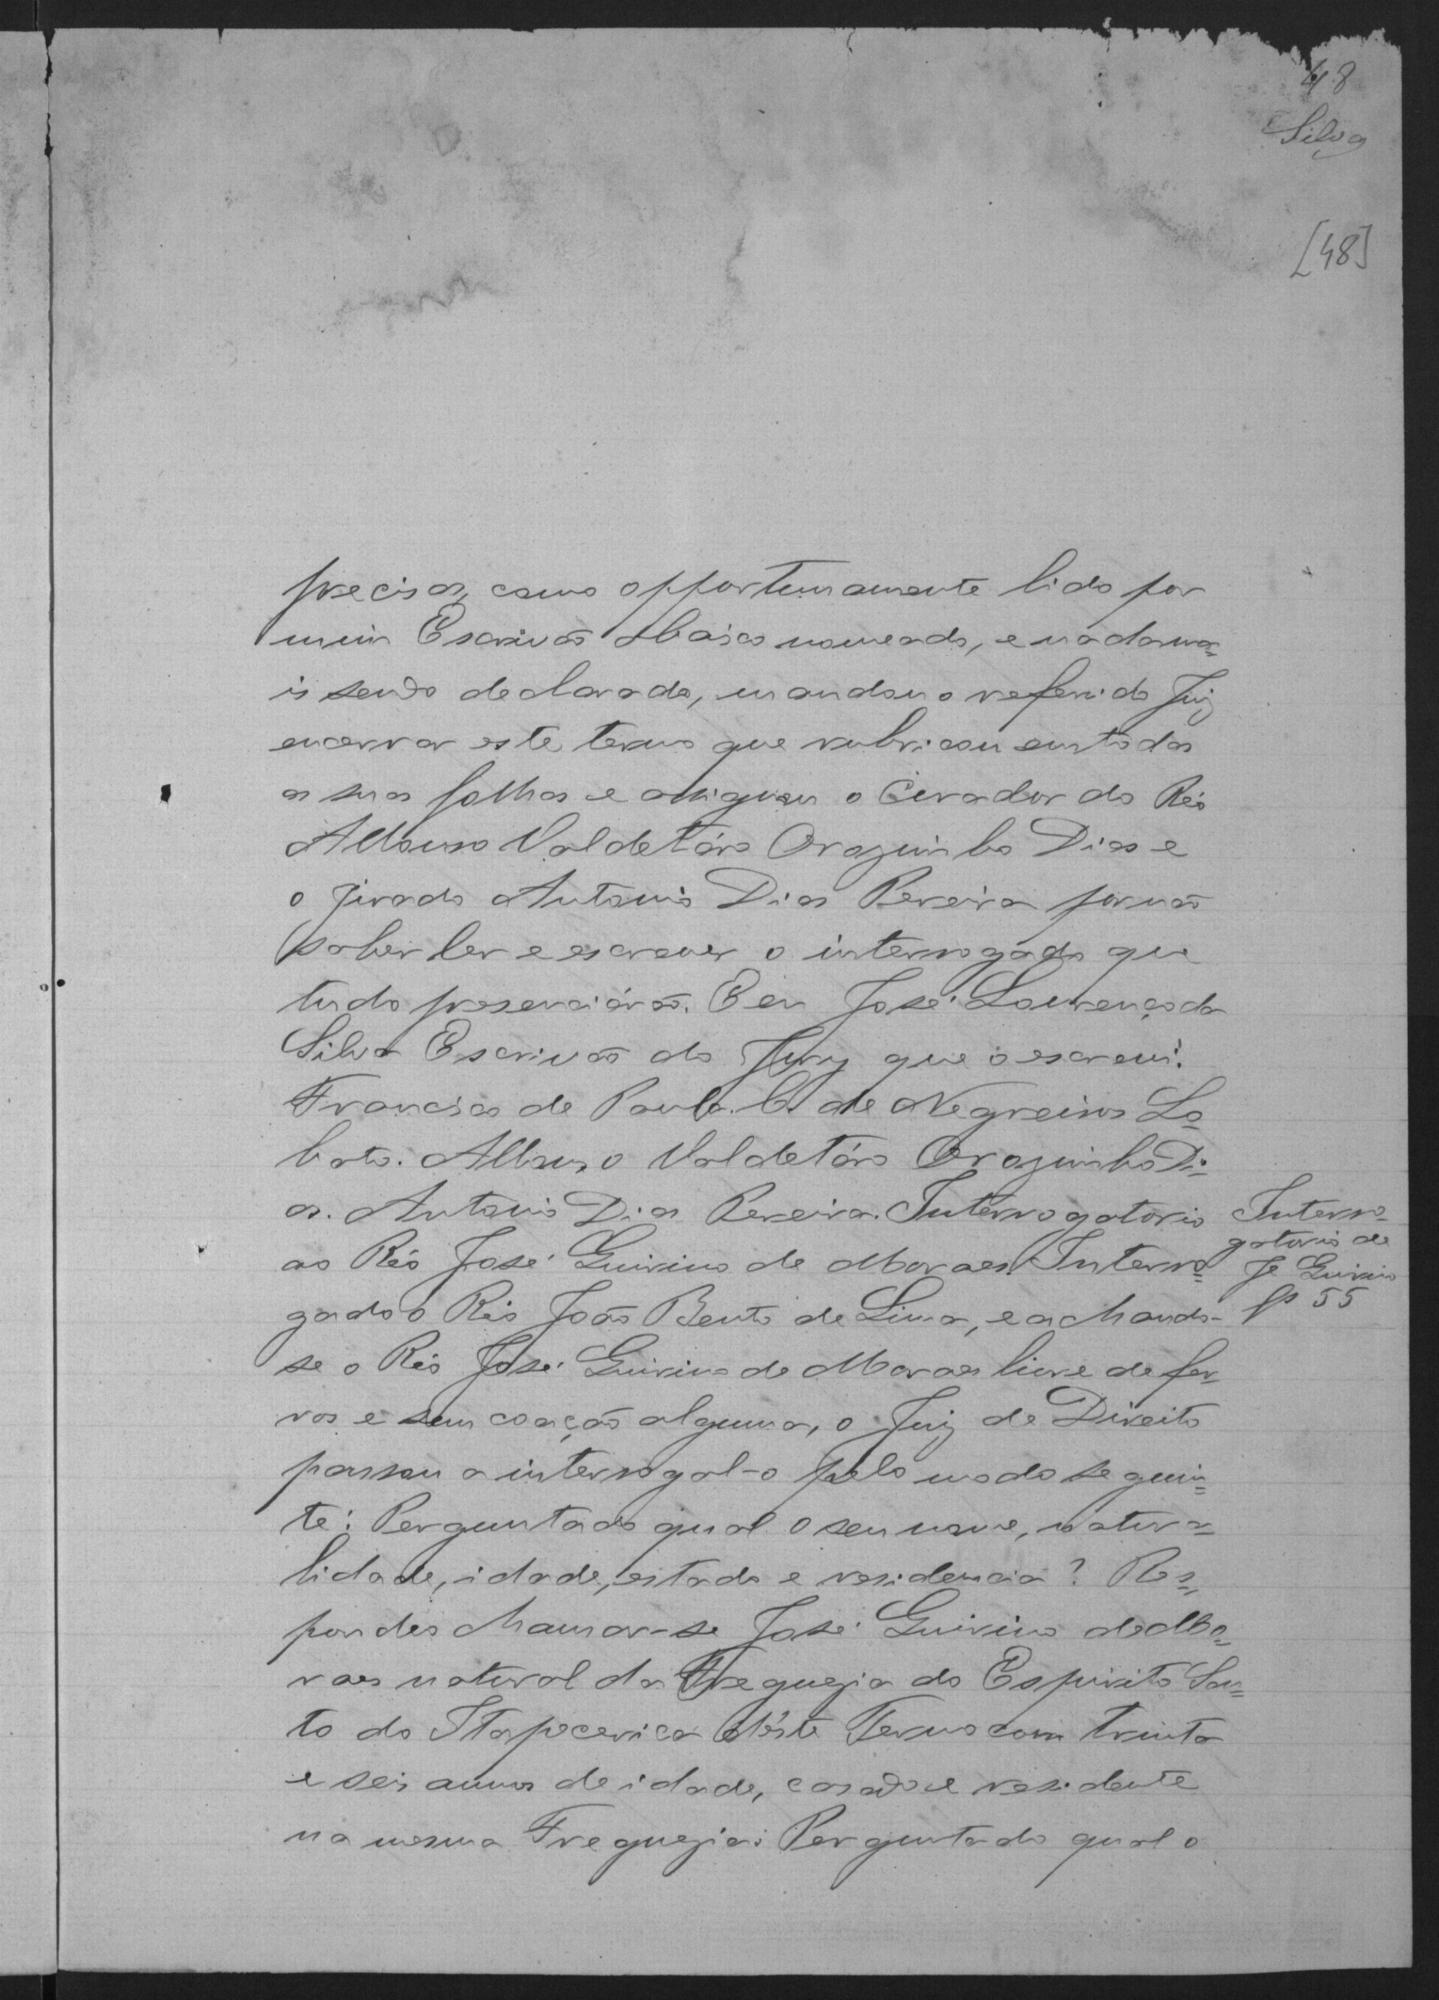 48
Silva
[48]
precisas, como opportunamente lido por
mim Escrivão abaixo nomeado, e nada ma=
is sendo declarado, mandou o referido Juiz
encerrar este termo que rubricou em todas
as suas folhas e assignou o Curador do Réo
Affonso Valdetáro Orozimbo Dias e
o jurado Antonio Dias Pereira por não
saber ler e escrever o interrogado que
tudo presenciárão. E eu José Lourenço da
Silva Escrivão do Jury que o escrevi.
Francisco de Paula C. de Negreiros Lo
bato. Affonso Valdetáro Orozimbo Di=
as. Antonio Dias Pereira. Interrogatorio
ao Réo José Quirino de Moraes. Interro=
gado o Réo João Bento de Lima, e achando-
se o Réo José Quirino de Moraes livre de fer
ros e sem coacção alguma, o Juiz de Direito
passou a interrogal-o pelo modo seguin=
te: Perguntado qual o seu nome, natura=
lidade, idade, estado e residencia? Res=
pondeo chamar-se José Quirino de Mo=
raes natural da Freguezia do Espirito San=
to da Itapecerica déste Termo com trinta
e seis annos de idade, casado e residente
na mesma Freguezia: Perguntado qual o
Interro=
gatorio de
Je Quirino
fs 55